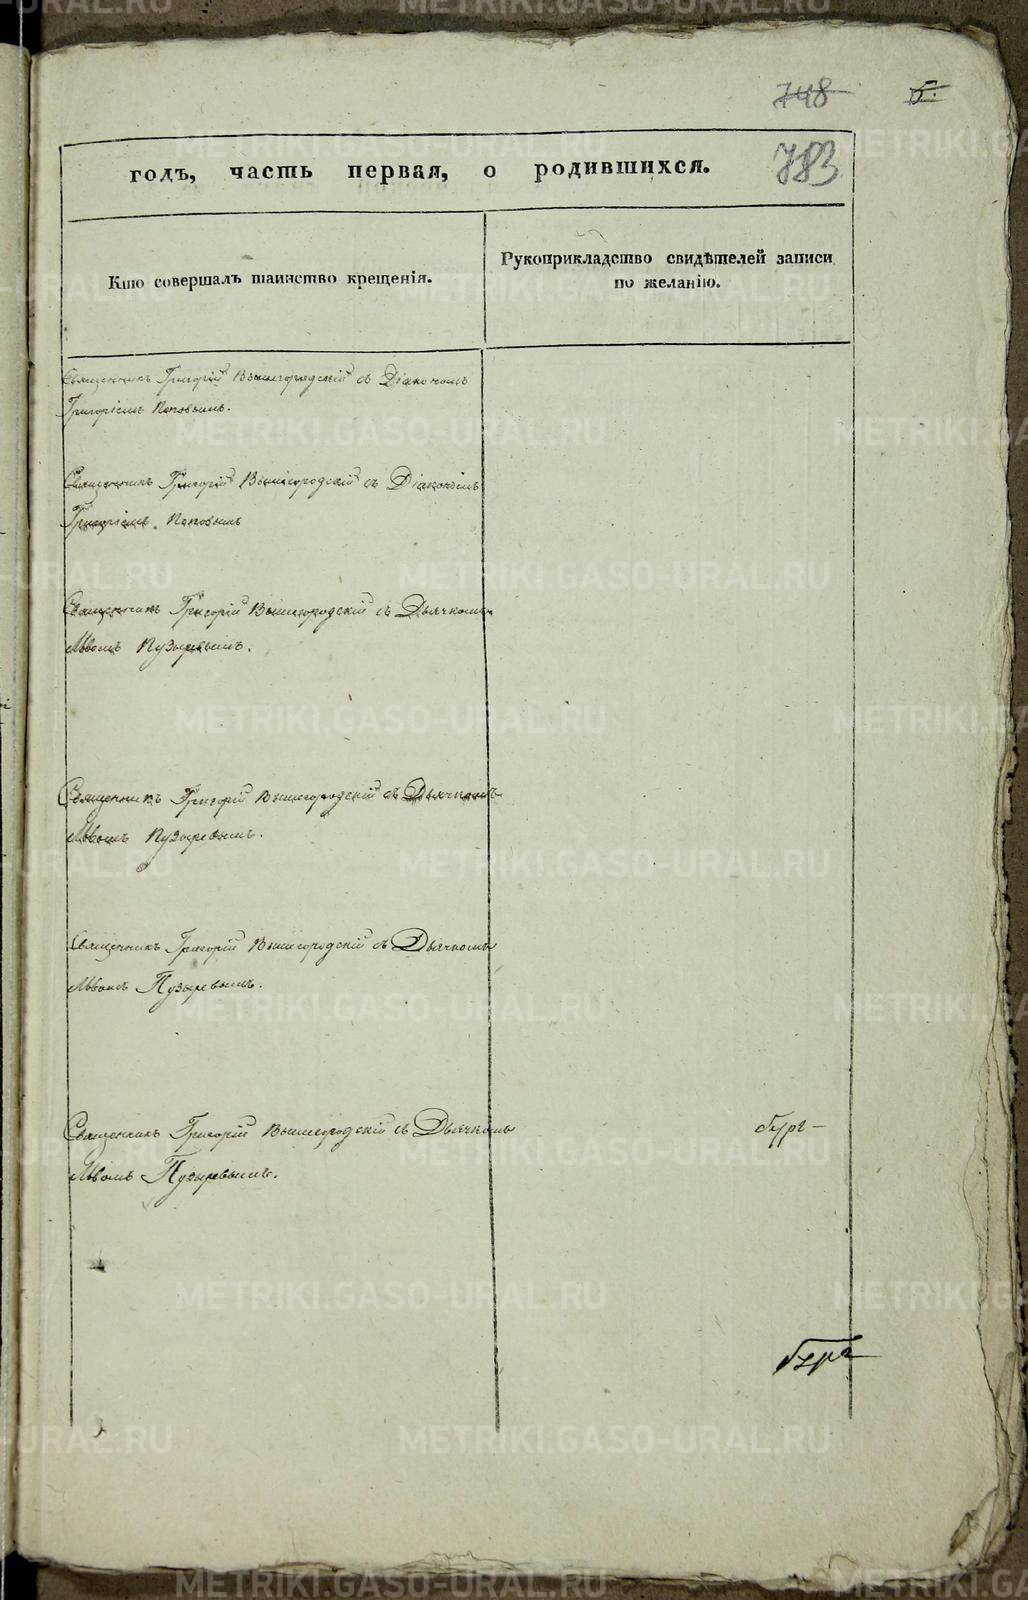 748
5.
783
годъ, часть первая, о родившихся.
Кто совершалъ таинство крещенія.
Рукоприкладство свидѣтелей записи
по желанію.
Священникъ Григорій Вышегородскій съ Діакономъ
Григоріемъ Поповымъ.
Священникъ Григорій Вышегородскій съ Діакономъ
Григоріемъ Поповымъ
Священникъ Григорій Вышегородскій съ Дьячкомъ
Львомъ Пузыревымъ.
Священникъ Григорій Вышегородскій съ Дьячкомъ
Львомъ Пузыревымъ.
Священникъ Григорій Вышегородскій съ Дьячкомъ
Львомъ Пузыревымъ.
Священникъ Григорій Вышегородскій съ Дьячкомъ
Львомъ Пузыревымъ.
METRIKI.GASO-URAL.RU